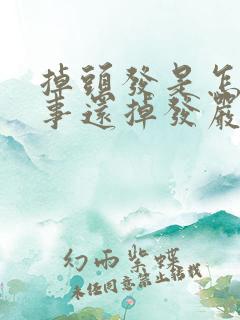 掉頭發是怎
事還掉發嚴
幻雨紫蝶
未经同意禁止转载